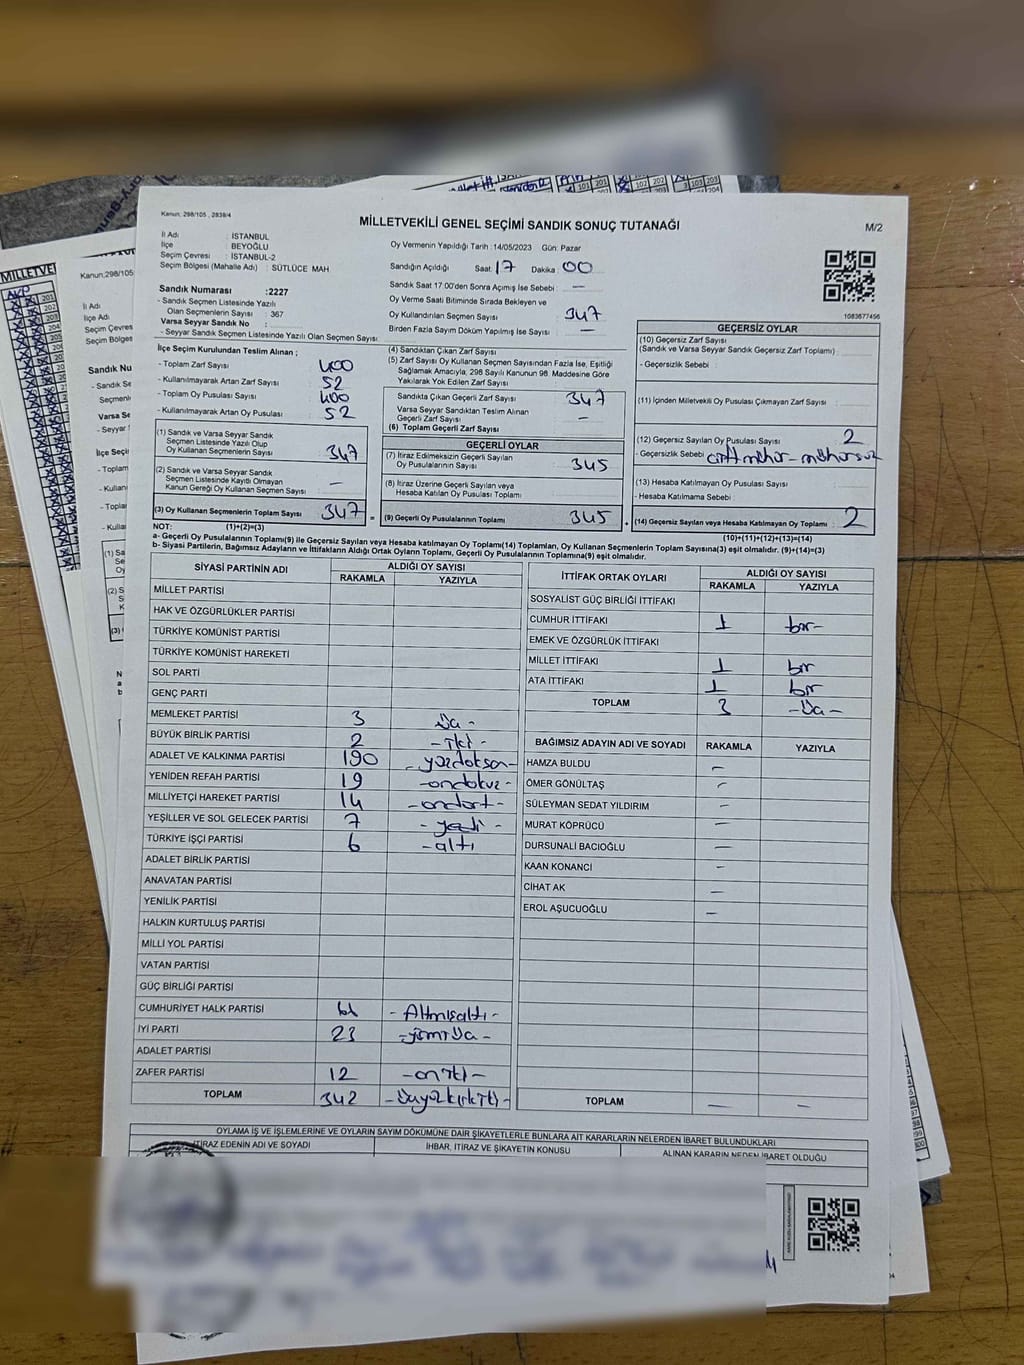 Kanun: 298/105 , 2839/4
MİLLETVEKİLİ GENEL SEÇİMİ SANDIK SONUÇ TUTANAĞI
M/2
İl Adı : İSTANBUL
İlçe : BEYOĞLU
Seçim Çevresi : İSTANBUL-2
Seçim Bölgesi (Mahalle Adı) : SÜTLÜCE MAH
Oy Vermenin Yapıldığı Tarih :14/05/2023 Gün: Pazar
Sandığın Açıldığı Saat: 17 Dakika: 00
Sandık Saat 17:00'den Sonra Açımış İse Sebebi : —
Oy Verme Saati Bitiminde Sırada Bekleyen ve
Oy Kullandırılan Seçmen Sayısı : 347
Birden Fazla Sayım Döküm Yapılmış İse Sayısı : —
1083677456
Sandık Numarası :2227
- Sandık Seçmen Listesinde Yazılı
Olan Seçmenlerin Sayısı : 367
Varsa Seyyar Sandık No :
- Seyyar Sandık Seçmen Listesinde Yazılı Olan Seçmen Sayısı :
İlçe Seçim Kurulundan Teslim Alınan ;
- Toplam Zarf Sayısı : 400
- Kullanılmayarak Artan Zarf Sayısı : 52
- Toplam Oy Pusulası Sayısı : 400
- Kullanılmayarak Artan Oy Pusulası : 52
(1) Sandık ve Varsa Seyyar Sandık
Seçmen Listesinde Yazılı Olup
Oy Kullanan Seçmenlerin Sayısı : 347
(2) Sandık ve Varsa Seyyar Sandık
Seçmen Listesinde Kayıtlı Olmayan
Kanun Gereği Oy Kullanan Seçmen Sayısı : —
(3) Oy Kullanan Seçmenlerin Toplam Sayısı : 347
(4) Sandıktan Çıkan Zarf Sayısı :
(5) Zarf Sayısı Oy Kullanan Seçmen Sayısından Fazla İse, Eşitliği
Sağlamak Amacıyla, 298 Sayılı Kanunun 98. Maddesine Göre
Yakılarak Yok Edilen Zarf Sayısı :
Sandıkta Çıkan Geçerli Zarf Sayısı : 347
Varsa Seyyar Sandıktan Teslim Alınan
Geçerli Zarf Sayısı : —
(6) Toplam Geçerli Zarf Sayısı :
GEÇERLİ OYLAR
(7) İtiraz Edilmeksizin Geçerli Sayılan
Oy Pusulalarının Sayısı : 345
(8) İtiraz Üzerine Geçerli Sayılan veya
Hesaba Katılan Oy Pusulası Toplamı :
= (9) Geçerli Oy Pusulalarının Toplamı : 345
GEÇERSİZ OYLAR
(10) Geçersiz Zarf Sayısı
(Sandık ve Varsa Seyyar Sandık Geçersiz Zarf Toplamı) :
- Geçersizlik Sebebi :
(11) İçinden Milletvekili Oy Pusulası Çıkmayan Zarf Sayısı :
(12) Geçersiz Sayılan Oy Pusulası Sayısı : 2
- Geçersizlik Sebebi : çift mühür - mühürsüz
(13) Hesaba Katılmayan Oy Pusulası Sayısı :
- Hesaba Katılmama Sebebi :
+ (14) Geçersiz Sayılan veya Hesaba Katılmayan Oy Toplamı : 2
NOT: (1)+(2)=(3) (10)+(11)+(12)+(13)=(14)
a- Geçerli Oy Pusulalarının Toplamı(9) ile Geçersiz Sayılan veya Hesaba katılmayan Oy Toplamı(14) Toplamları, Oy Kullanan Seçmenlerin Toplam Sayısına(3) eşit olmalıdır. (9)+(14)=(3)
b- Siyasi Partilerin, Bağımsız Adayların ve İttifakların Aldığı Ortak Oyların Toplamı, Geçerli Oy Pusulalarının Toplamına(9) eşit olmalıdır.
SİYASİ PARTİNİN ADI ALDIĞI OY SAYISI
RAKAMLA YAZIYLA
MİLLET PARTİSİ
HAK VE ÖZGÜRLÜKLER PARTİSİ
TÜRKİYE KOMÜNİST PARTİSİ
TÜRKİYE KOMÜNİST HAREKETİ
SOL PARTİ
GENÇ PARTİ
MEMLEKET PARTİSİ 3 Üç -
BÜYÜK BİRLİK PARTİSİ 2 - İki -
ADALET VE KALKINMA PARTİSİ 190 - yüzdoksan -
YENİDEN REFAH PARTİSİ 19 - ondokuz -
MİLLİYETÇİ HAREKET PARTİSİ 14 - ondört -
YEŞİLLER VE SOL GELECEK PARTİSİ 7 - yedi -
TÜRKİYE İŞÇİ PARTİSİ 6 - altı
ADALET BİRLİK PARTİSİ
ANAVATAN PARTİSİ
YENİLİK PARTİSİ
HALKIN KURTULUŞ PARTİSİ
MİLLİ YOL PARTİSİ
VATAN PARTİSİ
GÜÇ BİRLİĞİ PARTİSİ
CUMHURİYET HALK PARTİSİ 66 - Altmışaltı -
İYİ PARTİ 23 - yirmiüç -
ADALET PARTİSİ
ZAFER PARTİSİ 12 - oniki -
TOPLAM 342 - Üçyüzkırkiki -
İTTİFAK ORTAK OYLARI ALDIĞI OY SAYISI
RAKAMLA YAZIYLA
SOSYALİST GÜÇ BİRLİĞİ İTTİFAKI
CUMHUR İTTİFAKI 1 bir -
EMEK VE ÖZGÜRLÜK İTTİFAKI
MİLLET İTTİFAKI 1 bir
ATA İTTİFAKI 1 bir
TOPLAM 3 - Üç -
BAĞIMSIZ ADAYIN ADI VE SOYADI RAKAMLA YAZIYLA
HAMZA BULDU —
ÖMER GÖNÜLTAŞ —
SÜLEYMAN SEDAT YILDIRIM —
MURAT KÖPRÜCÜ —
DURSUNALİ BACIOĞLU —
KAAN KONANCI —
CİHAT AK —
EROL AŞUCUOĞLU —
TOPLAM — —
OYLAMA İŞ VE İŞLEMLERİNE VE OYLARIN SAYIM DÖKÜMÜNE DAİR ŞİKAYETLERLE BUNLARA AİT KARARLARIN NELERDEN İBARET BULUNDUKLARI
İTİRAZ EDENİN ADI VE SOYADI İHBAR, İTİRAZ VE ŞİKAYETİN KONUSU ALINAN KARARIN NEDEN İBARET OLDUĞU